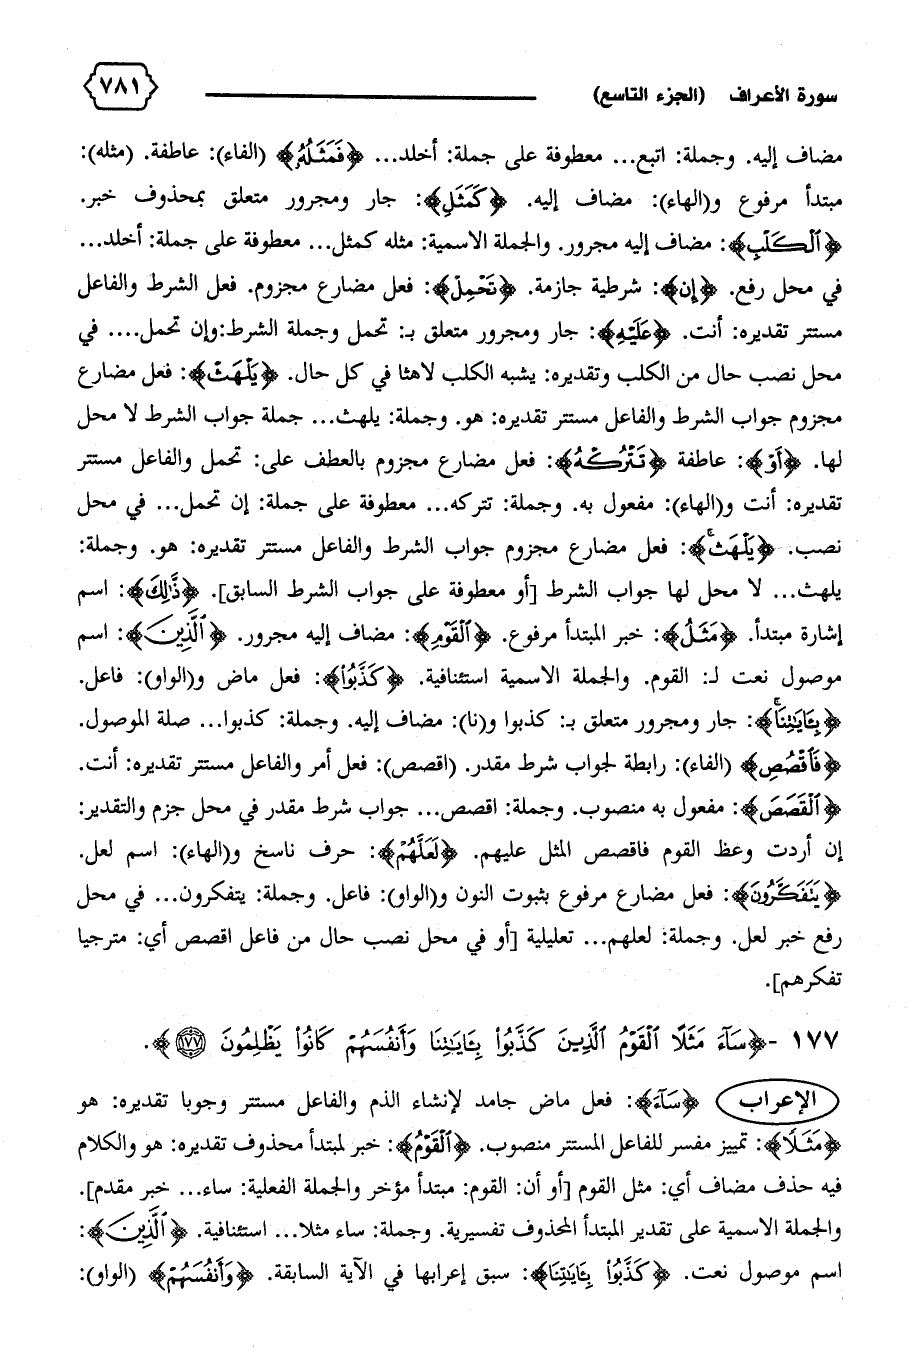 سورة الأعراف (الجزء التاسع) ٧٨١
مضاف إليه. وجملة: اتبع... معطوفة على جملة: أخلد... ﴿فَمَثَلُهُۥ﴾ (الفاء): عاطفة. (مثله):
مبتدأ مرفوع و(الهاء): مضاف إليه. ﴿كَمَثَلِ﴾: جار ومجرور متعلق بمحذوف خبر.
﴿ٱلْكَلْبِ﴾: مضاف إليه مجرور. والجملة الاسمية: مثله كمثل... معطوفة على جملة: أخلد...
في محل رفع. ﴿إِن﴾: شرطية جازمة. ﴿تَحْمِلْ﴾: فعل مضارع مجزوم. فعل الشرط والفاعل
مستتر تقديره: أنت. ﴿عَلَيْهِ﴾: جار ومجرور متعلق بـ: تحمل وجملة الشرط:وإن تحمل.... في
محل نصب حال من الكلب وتقديره: يشبه الكلب لاهثا في كل حال. ﴿يَلْهَثْ﴾: فعل مضارع
مجزوم جواب الشرط والفاعل مستتر تقديره: هو. وجملة: يلهث... جملة جواب الشرط لا محل
لها. ﴿أَوْ﴾: عاطفة ﴿تَتْرُكْهُ﴾: فعل مضارع مجزوم بالعطف على: تحمل والفاعل مستتر
تقديره: أنت و(الهاء): مفعول به. وجملة: تتركه... معطوفة على جملة: إن تحمل... في محل
نصب. ﴿يَلْهَثۚ﴾: فعل مضارع مجزوم جواب الشرط والفاعل مستتر تقديره: هو. وجملة:
يلهث... لا محل لها جواب الشرط [أو معطوفة على جواب الشرط السابق]. ﴿ذَّٰلِكَ﴾: اسم
إشارة مبتدأ. ﴿مَثَلُ﴾: خبر المبتدأ مرفوع. ﴿ٱلْقَوْمِ﴾: مضاف إليه مجرور. ﴿ٱلَّذِينَ﴾: اسم
موصول نعت لـ: القوم. والجملة الاسمية استئنافية. ﴿كَذَّبُوا۟﴾: فعل ماض و(الواو): فاعل.
﴿بِـَٔايَـٰتِنَاۚ﴾: جار ومجرور متعلق بـ: كذبوا و(نا): مضاف إليه. وجملة: كذبوا... صلة الموصول.
﴿فَٱقْصُصِ﴾ (الفاء): رابطة لجواب شرط مقدر. (اقصص): فعل أمر والفاعل مستتر تقديره: أنت.
﴿ٱلْقَصَصَ﴾: مفعول به منصوب. وجملة: اقصص... جواب شرط مقدر في محل جزم والتقدير:
إن أردت وعظ القوم فاقصص المثل عليهم. ﴿لَعَلَّهُمْ﴾: حرف ناسخ و(الهاء): اسم لعل.
﴿يَتَفَكَّرُونَ﴾: فعل مضارع مرفوع بثبوت النون و(الواو): فاعل. وجملة: يتفكرون... في محل
رفع خبر لعل. وجملة: لعلهم... تعليلية [أو في محل نصب حال من فاعل اقصص أي: مترجيا
تفكرهم].
١٧٧ -﴿سَآءَ مَثَلًا ٱلْقَوْمُ ٱلَّذِينَ كَذَّبُوا۟ بِـَٔايَـٰتِنَا وَأَنفُسَهُمْ كَانُوا۟ يَظْلِمُونَ ١٧٧﴾.
الإعراب ﴿سَآءَ﴾: فعل ماض جامد لإنشاء الذم والفاعل مستتر وجوبا تقديره: هو
﴿مَثَلًا﴾: تمييز مفسر للفاعل المستتر منصوب. ﴿ٱلْقَوْمُ﴾: خبر لمبتدأ محذوف تقديره: هو والكلام
فيه حذف مضاف أي: مثل القوم [أو أن: القوم: مبتدأ مؤخر والجملة الفعلية: ساء... خبر مقدم].
والجملة الاسمية على تقدير المبتدأ المحذوف تفسيرية. وجملة: ساء مثلا... استئنافية. ﴿ٱلَّذِينَ﴾:
اسم موصول نعت. ﴿كَذَّبُوا۟ بِـَٔايَـٰتِنَا﴾: سبق إعرابها في الآية السابقة. ﴿وَأَنفُسَهُمْ﴾ (الواو):